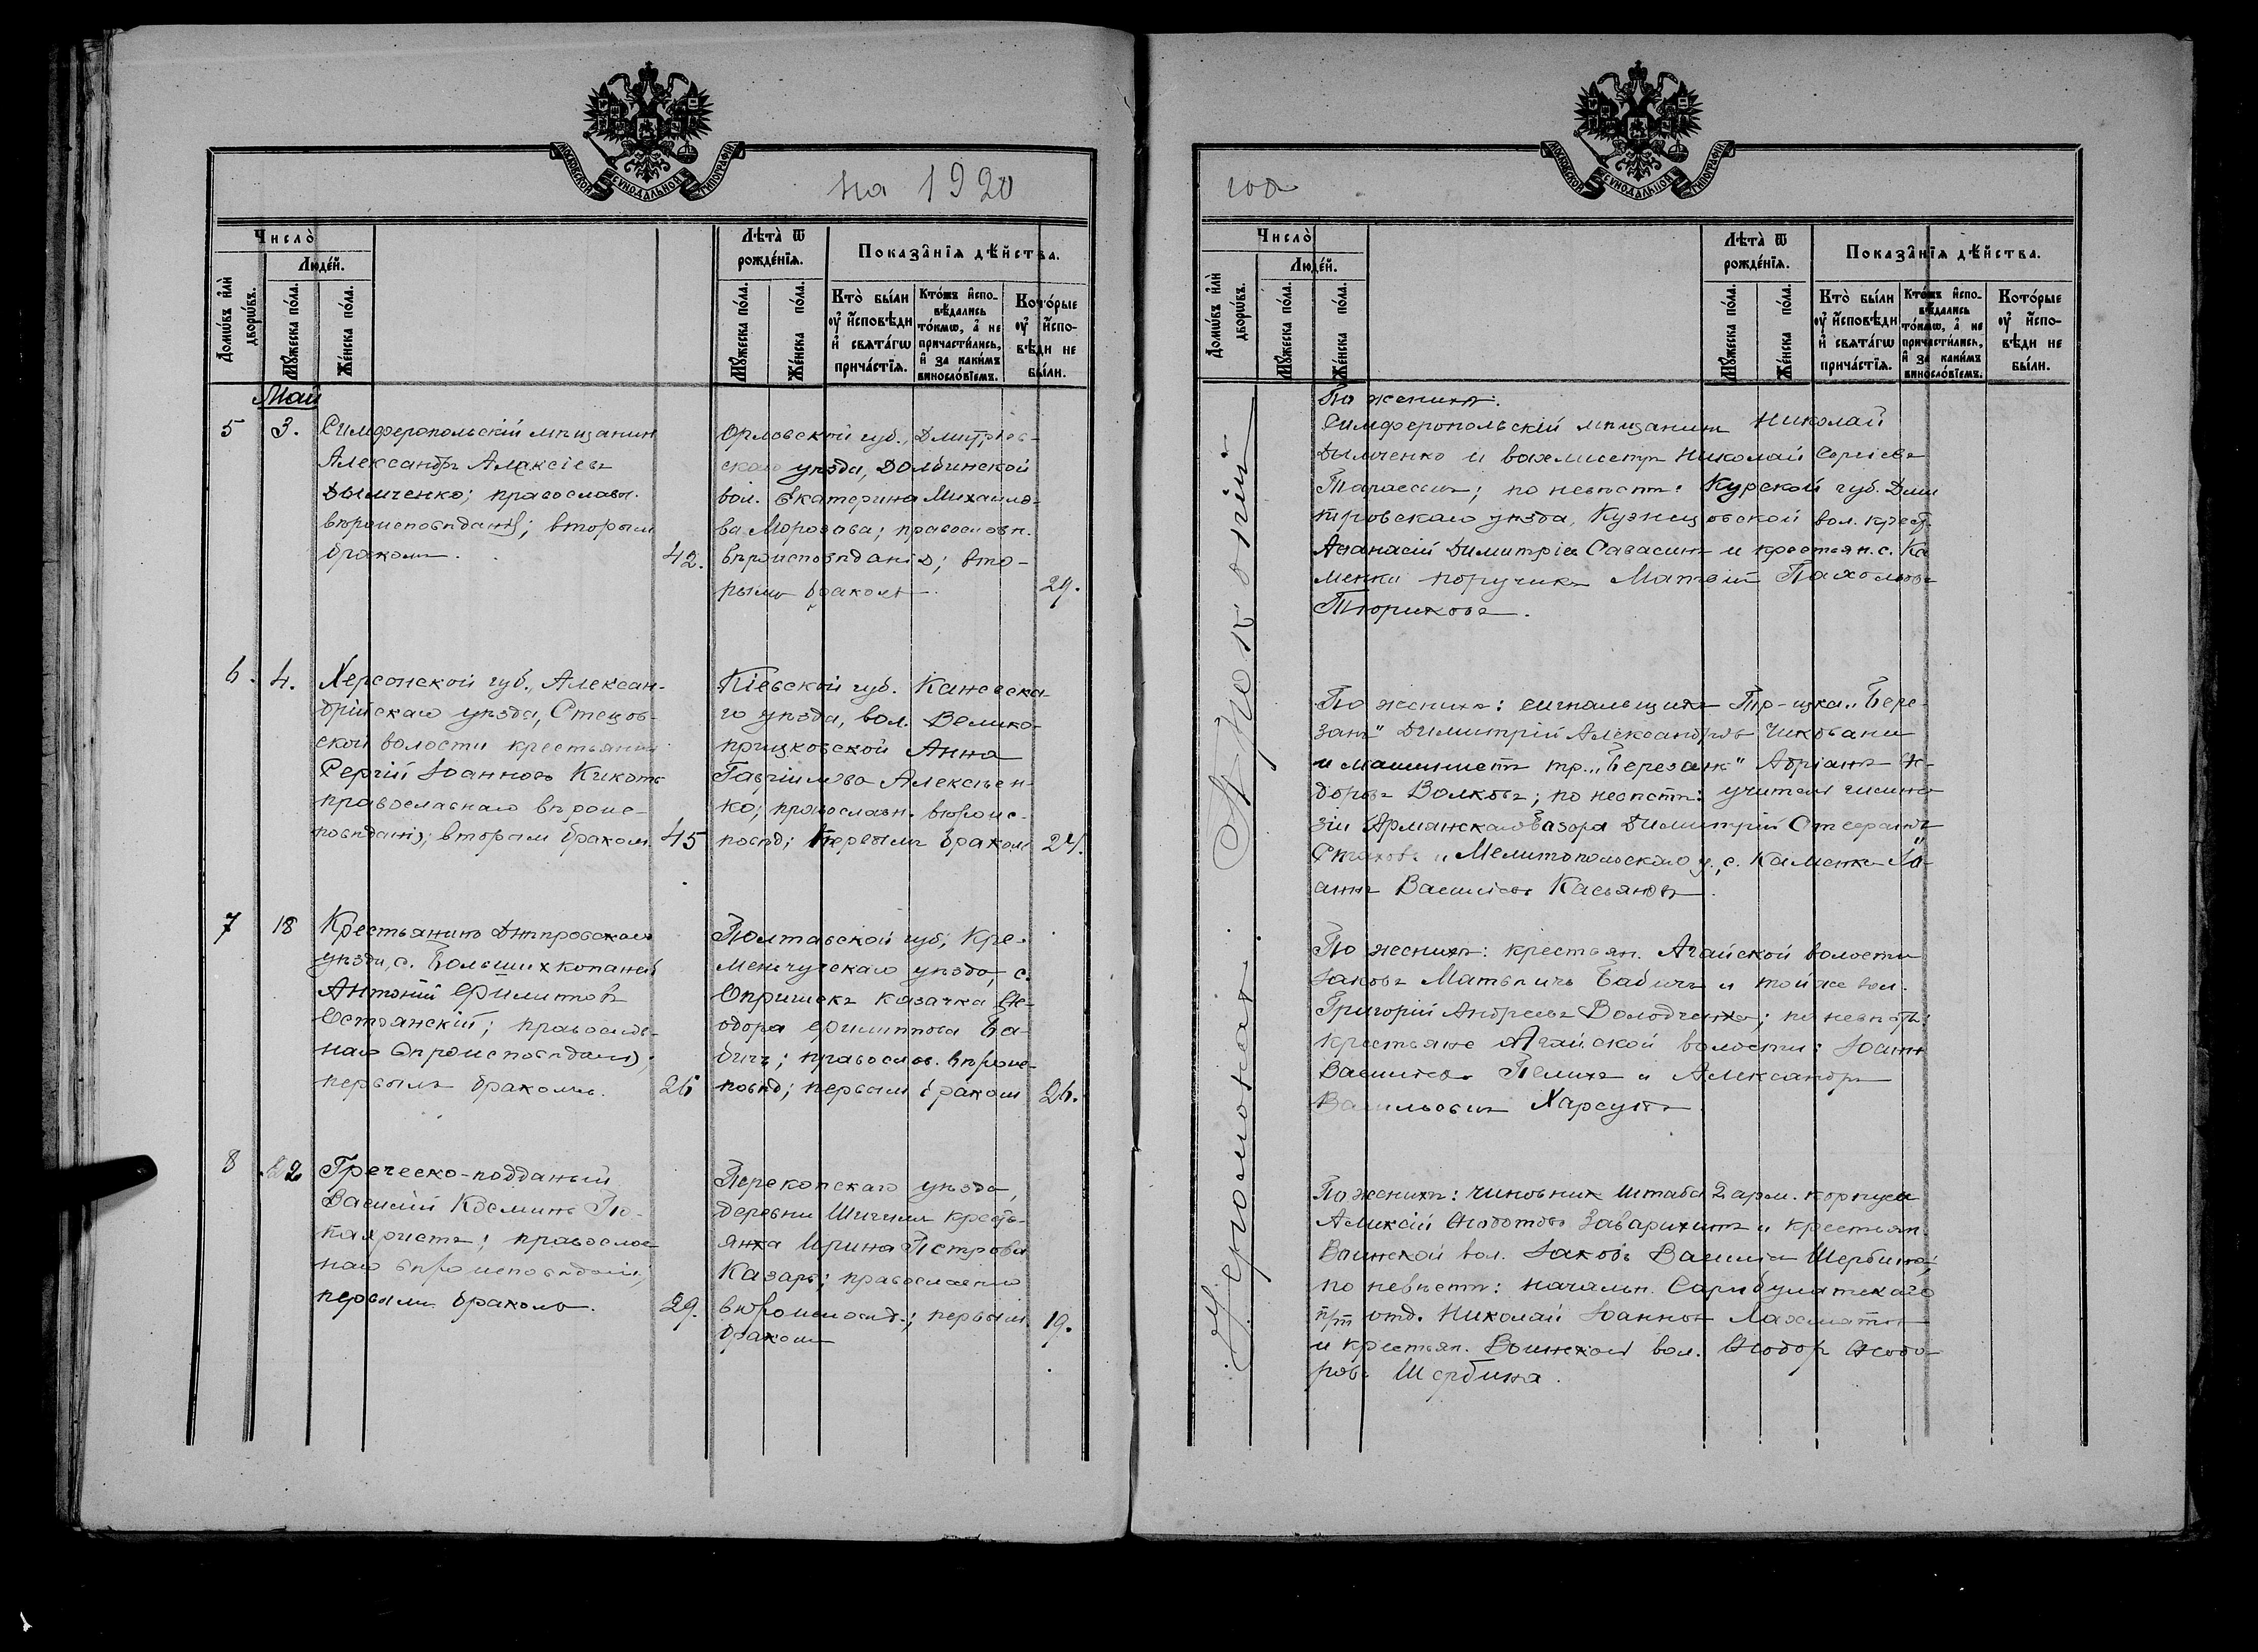 МОСКОВСКОЙ СѴНОДАЛЬНОЙ ТИПОГРАФІИ
на 1920
Число̀
Людє́й.
Домѡ́въ и҆лѝ дворѡ́въ.
Мꙋ́жеска по́ла.
Же́нска по́ла.
Лѣта̀ ѿ рожде́нїѧ.
Мꙋ́жеска по́ла.
Же́нска по́ла.
Показа̑нїѧ дѣ́йства.
Кто̀ бы́ли оу҆ и҆сповѣди и҆ свѧта́гѡ прича́стїѧ.
Кто́жъ и҆спо-вѣ́дались то́кмѡ, а҆ не причасти́лись, и҆ за каки́мъ винословїемъ.
Кото́рые оу҆ и҆спо-вѣди не бы́ли.
Май
5 3. Симферопольскій мѣщанин
Александръ Алексіевъ
Дымченко; православн.
вѣроисповѣданія; вторым
бракомъ. 42.
Орловской губ., Дмитров-
скаго уѣзда, Долбинской
вол. Екатерина Михаило-
ва Морозова; православн.
вѣроисповѣданія; вто-
рымъ бракомъ. 29.
6. 4. Херсонской губ., Алексан-
дрійскаго уѣзда, Стецов-
ской волости крестьянин
Сергій Іоанновъ Кикоть
православнаго вѣроис-
повѣданія; вторым браком 45
Кіевской губ. Каневска-
го уѣзда, вол. Велико-
прицковской Анна
Гавріилова Алексѣен-
ко; православн. вѣроис-
повѣд; первымъ браком 24.
7 18 Крестьянинъ Днѣпровскаго
уѣзда, с. Большихкопаней
Антоній Филиповъ
Остянскій; православ-
наго вѣроисповѣданія;
первымъ бракомъ. 26
Полтавской губ; Кре-
менчугскаго уѣзда, с.
Опришекъ казачка Ѳе-
одора Филиппова Ба-
бичъ; православ. вѣроис-
повѣд; первым браком 26.
8 22 Греческо-подданый
Василій Косминъ
православ
наго вѣроисповѣданія;
первымъ бракомъ. 29.
Перекопскаго уѣзда,
деревни Шигимъ кресть-
янка Ирина Петрова
Казаръ; православнаго
вѣроисповѣд.; первым 19.
браком
МОСКОВСКОЙ СѴНОДАЛЬНОЙ ТИПОГРАФІИ
год
Число̀
Людє́й.
Домѡ́въ и҆лѝ дворѡ́въ.
Мꙋ́жеска по́ла.
Же́нска по́ла.
Лѣта̀ ѿ рожде́нїѧ.
Мꙋ́жеска по́ла.
Же́нска по́ла.
Показа̑нїѧ дѣ́йства.
Кто̀ бы́ли оу҆ и҆сповѣди и҆ свѧта́гѡ прича́стїѧ.
Кто́жъ и҆спо-вѣ́дались то́кмѡ, а҆ не причасти́лись, и҆ за каки́мъ винословїемъ.
Кото́рые оу҆ и҆спо-вѣди не бы́ли.
Іеромонах
По женихѣ:
Симферопольскій мѣщанинъ Николай
Дымченко и вахмистръ Николай Сергіевъ
Тарассинъ; по невѣстѣ: Курской губ. Дми
тровскаго уѣзда, Кузнецовской вол. крест.
Аѳанасій Димитріев Савасинъ и крестьян. с. Ка
менки поручикъ Матвѣй Пахомовъ
Тюриковъ.
По женихѣ: сигнальщикъ Тр-щка „Бере-
зань" Димитрій Александровъ Чиковани
и машинистъ тр. „Березань" Адріанъ Ѳ-
доровъ Волковъ; по невѣстѣ: учитель гимна
зіи Армянскаго Базара Димитрій Стефановъ
и Мелитопольскаго у., с. Каменки Іо-
аннъ Василіевъ Касьяновъ.
По женихѣ: крестьян. Агайской волости
Іаковъ Матвѣичъ Бабичъ и тойже вол.
Григорій Андреевъ Володченко; по невѣстѣ:
крестьяне Агайской волости: Іоаннъ
Василіевъ Пелихъ и Александръ
Васильевичъ Харсунъ.
По женихѣ: чиновник штаба 2 арм. корпуса
Алексій Ѳеодотовъ Заварихинъ и крестьян.
Воинской вол. Іаковъ Василіев Щербина;
по невѣстѣ: начальн. Сарибулатскаго
п/т отд. Николай Іоаннов Лахматов
и крестьян. Воинской вол. Ѳеодор Ѳеодо-
ровъ Щербина.